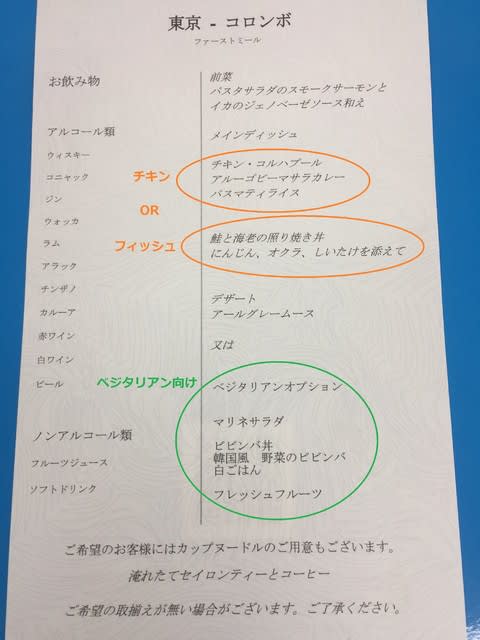 東京 - コロンボ
ファーストミール
お飲み物
アルコール類
ウィスキー
コニャック
ジン
ウォッカ
ラム
アラック
チンザノ
カルーア
赤ワイン
白ワイン
ビール
ノンアルコール類
フルーツジュース
ソフトドリンク
前菜
パスタサラダのスモークサーモンと
イカのジェノベーゼソース和え
メインディッシュ
チキン
チキン・コルハプール
アルーゴビーマサラカレー
バスマティライス
OR
フィッシュ
鮭と海老の照り焼き丼
にんじん、オクラ、しいたけを添えて
デザート
アールグレームース
又は
ベジタリアン向け
ベジタリアンオプション
マリネサラダ
ビビンバ丼
韓国風 野菜のビビンバ
白ごはん
フレッシュフルーツ
ご希望のお客様にはカップヌードルのご用意もございます。
淹れたてセイロンティーとコーヒー
ご希望の取揃えが無い場合がございます。ご了承ください。